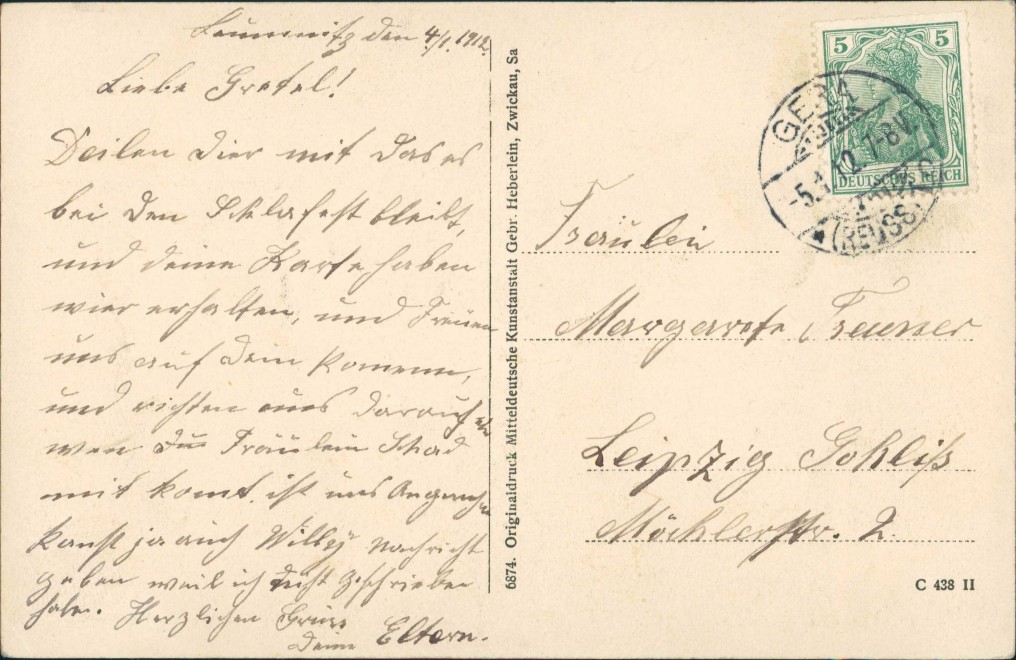 Leumnitz den 4/1. 1912.
Liebe Gretel!
Deilen dier mit das es
bei den Schlafest bleibt,
und deine Karte haben
wier erhalten, und Freuen
uns auf dein komenn,
und richten uns darauf
wen Fräulein Schad
mit komt, ist uns Angenehm
kanst ja auch Willy nachricht
geben weil ich nicht geschrieben
habe. Herzlichen Gruss
Deine Eltern.
6874. Originaldruck Mitteldeutsche Kunstanstalt Gebr. Heberlein, Zwickau, Sa
5 5
DEUTSCHES REICH
GERA
-5.1.12. 7-8V.
* (REUSS)
Fräulein
Margarete
Leipzig Gohlis
Möcklerstr. 2.
C 438 II